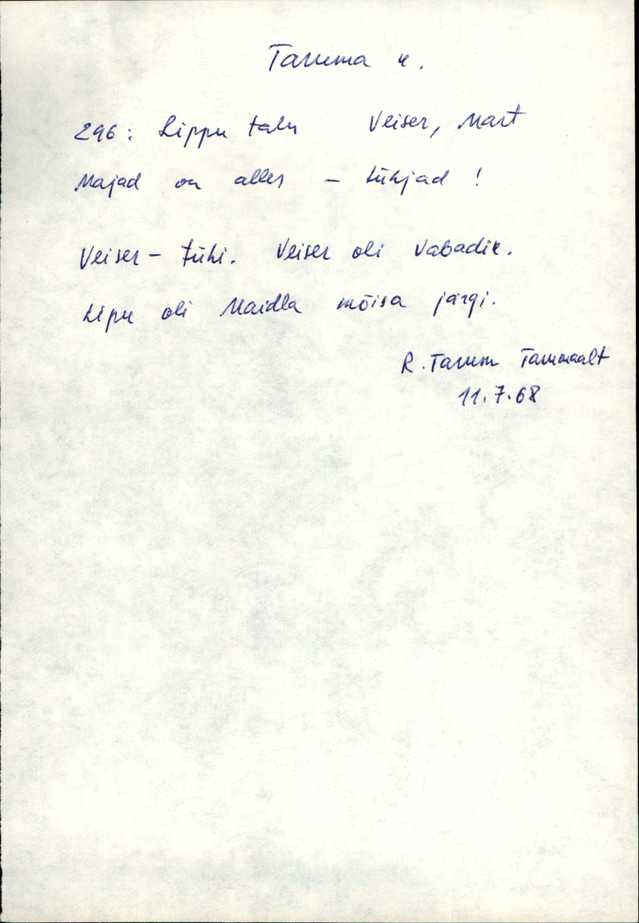 Tamma k.
296: Lippu talu Veiser, Mart
Majad on alles – tühjad!
Veiser – tühi. Veiser oli vabadik.
Lipu oli Maidla mõisa järgi.
R. Tamm Tammaalt
11.7.68